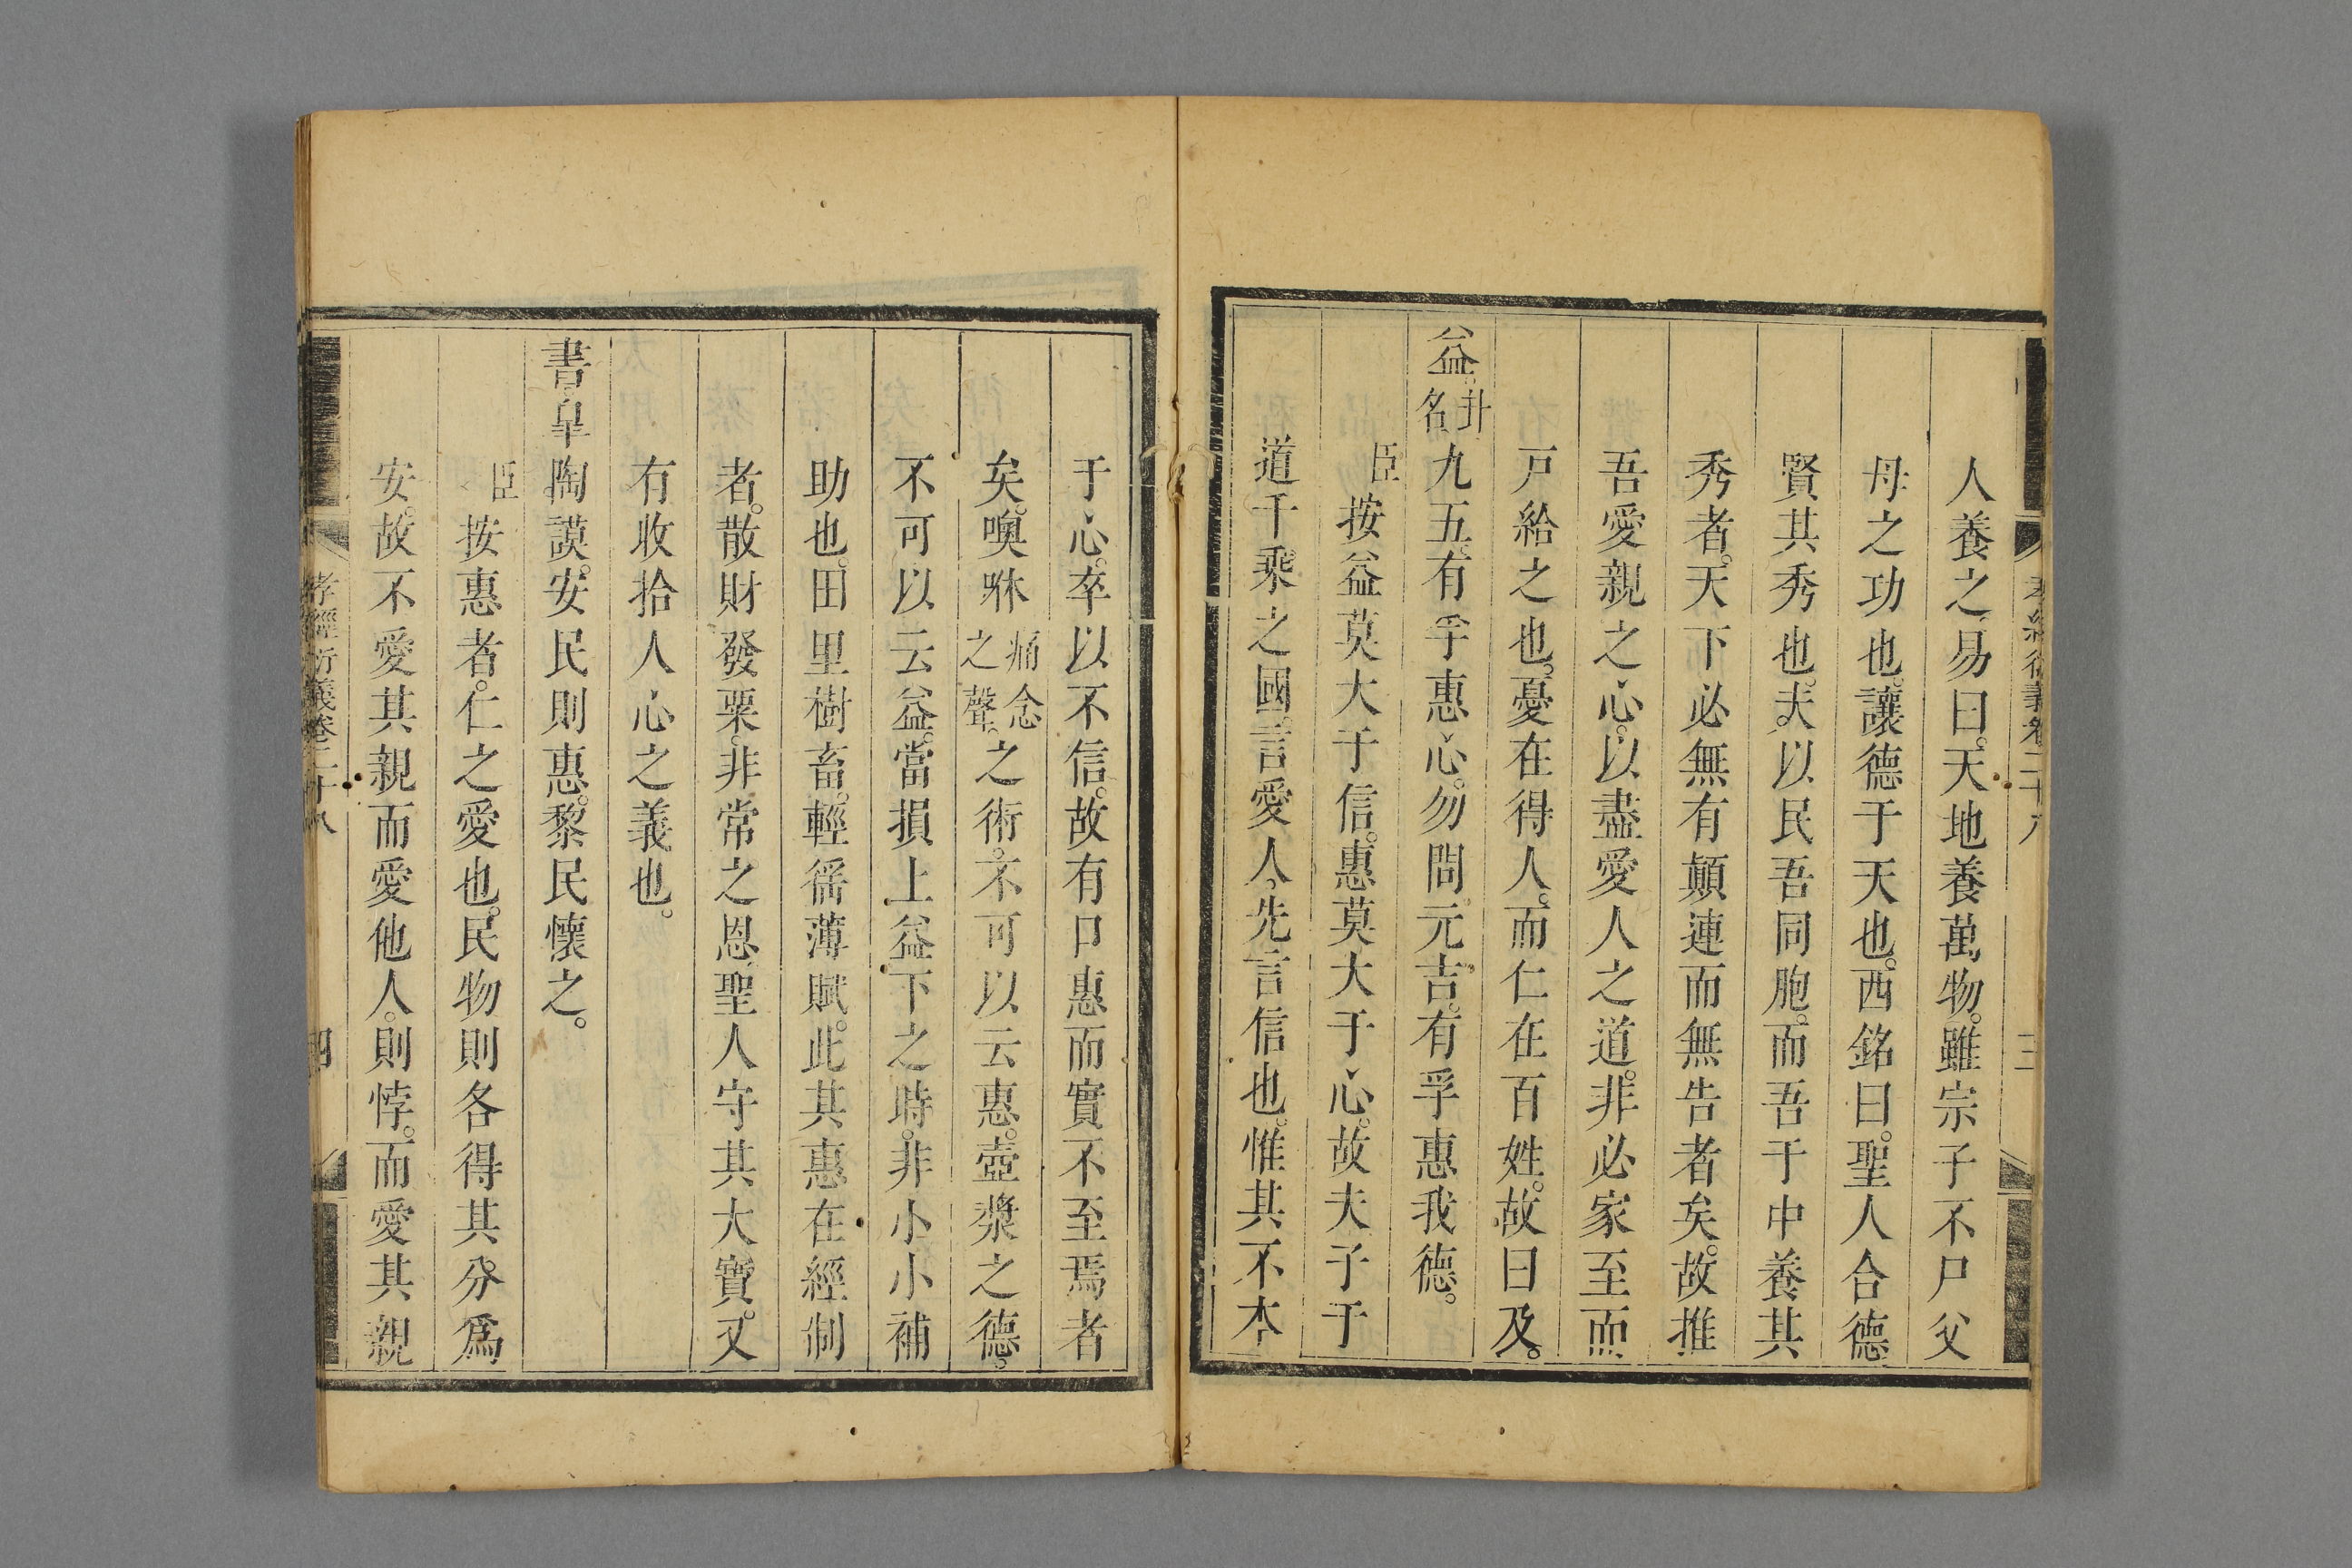 孝經衍義卷二十八 三
人養之易曰。天地養萬物。雖宗子不尸父
母之功也。讓德于天也。西銘曰。聖人合德
賢其秀也。夫以民吾同胞。而吾于中養其
秀者。天下必無有顛連而無告者矣。故推
吾愛親之心。以盡愛人之道。非必家至而
戸給之也。憂在得人。而仁在百姓。故曰及。
益。卦名九五。有孚惠心。勿問元吉。有孚惠我德。
臣按益莫大于信。惠莫大于心。故夫子于
道千乘之國。言愛人。先言信也。惟其不本
于心。卒以不信。故有口惠而實不至焉者
矣。噢咻痛念之聲。之術。不可以云惠。壺漿之德。
不可以云益。當損上益下之時。非小小補
助也。田里樹畜。輕徭薄賦。此其惠在經制
者。散財發粟。非常之恩。聖人守其大寶。又
有收拾人心之義也。
書皐陶謨。安民則惠。黎民懷之。
臣按惠者。仁之愛也。民物則各得其分爲
安。故不愛其親而愛他人。則悖。而愛其親
孝經衍義卷二十八 四